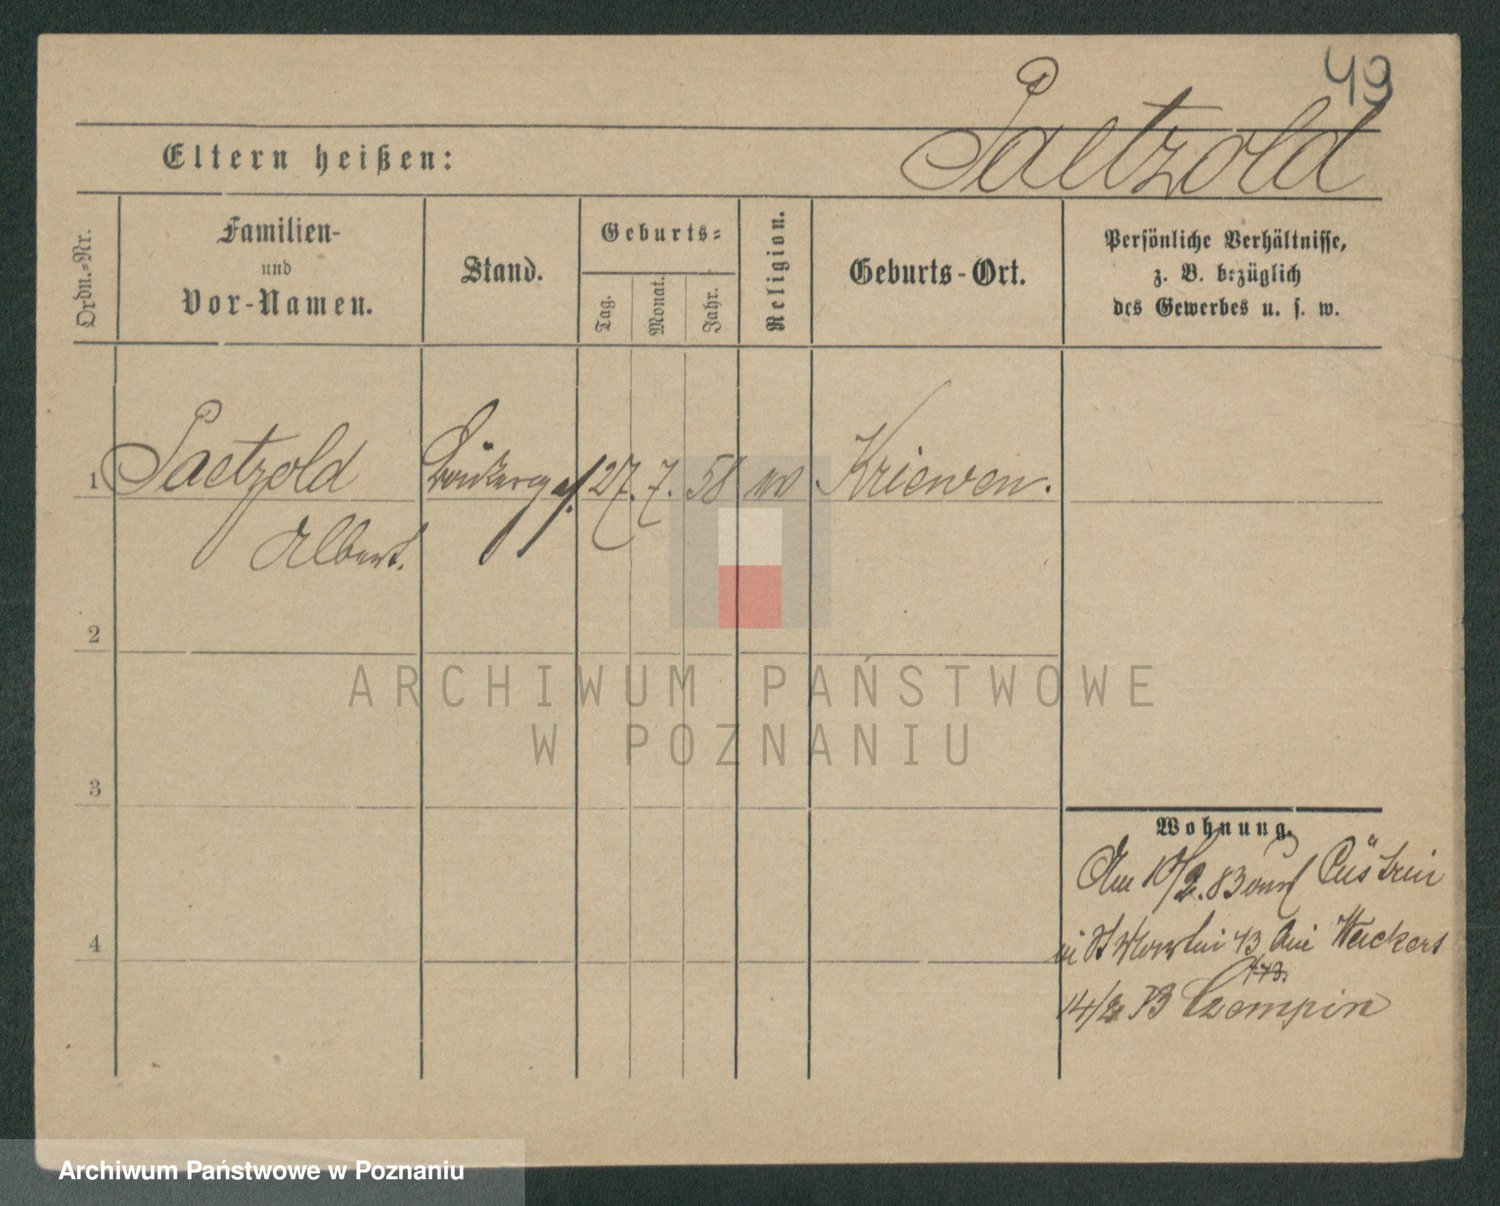 49
Paetzold
Eltern heißen:
Ordn.=Nr.
Familien-
und
Vor-Namen.
Stand.
Geburts=
Tag.
Monat.
Jahr.
Religion.
Geburts-Ort.
Persönliche Verhältnisse,
z. B. bezüglich
des Gewerbes u. s. w.
1 Paetzold 27. 7. 58 Kriewen.
Albert.
2
3
4
Wohnung.
Am 10/2. 83 Cüstrin
St Martin 43 bei
14/2 83 Czempin
ARCHIWUM PAŃSTWOWE
W POZNANIU
Archiwum Państwowe w Poznaniu